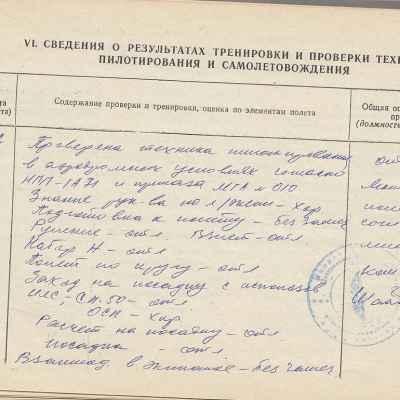 VI. СВЕДЕНИЯ О РЕЗУЛЬТАТАХ ТРЕНИРОВКИ И ПРОВЕРКИ ТЕХ
ПИЛОТИРОВАНИЯ И САМОЛЕТОВОЖДЕНИЯ
Содержание проверки и тренировки, оценка по элементам полета
Общая оц
пр
(должность
та
та)
Проведена техника пилотирования
в аэродромных условиях согласно
НПП-ГА71 и приказа МГА № 010
Знание рук-ва по л/эксп - Хор
Подготовка к полету - без замеч
Руление - отл. Взлет - отл.
Набор H - отл.
Полет по кругу - отл.
Заход на посадку с использов
СП-50 - отл.
ОСП - Хор.
Расчет на посадку - отл.
Посадка - отл.
Взаимод. в экипаже - без замеч.